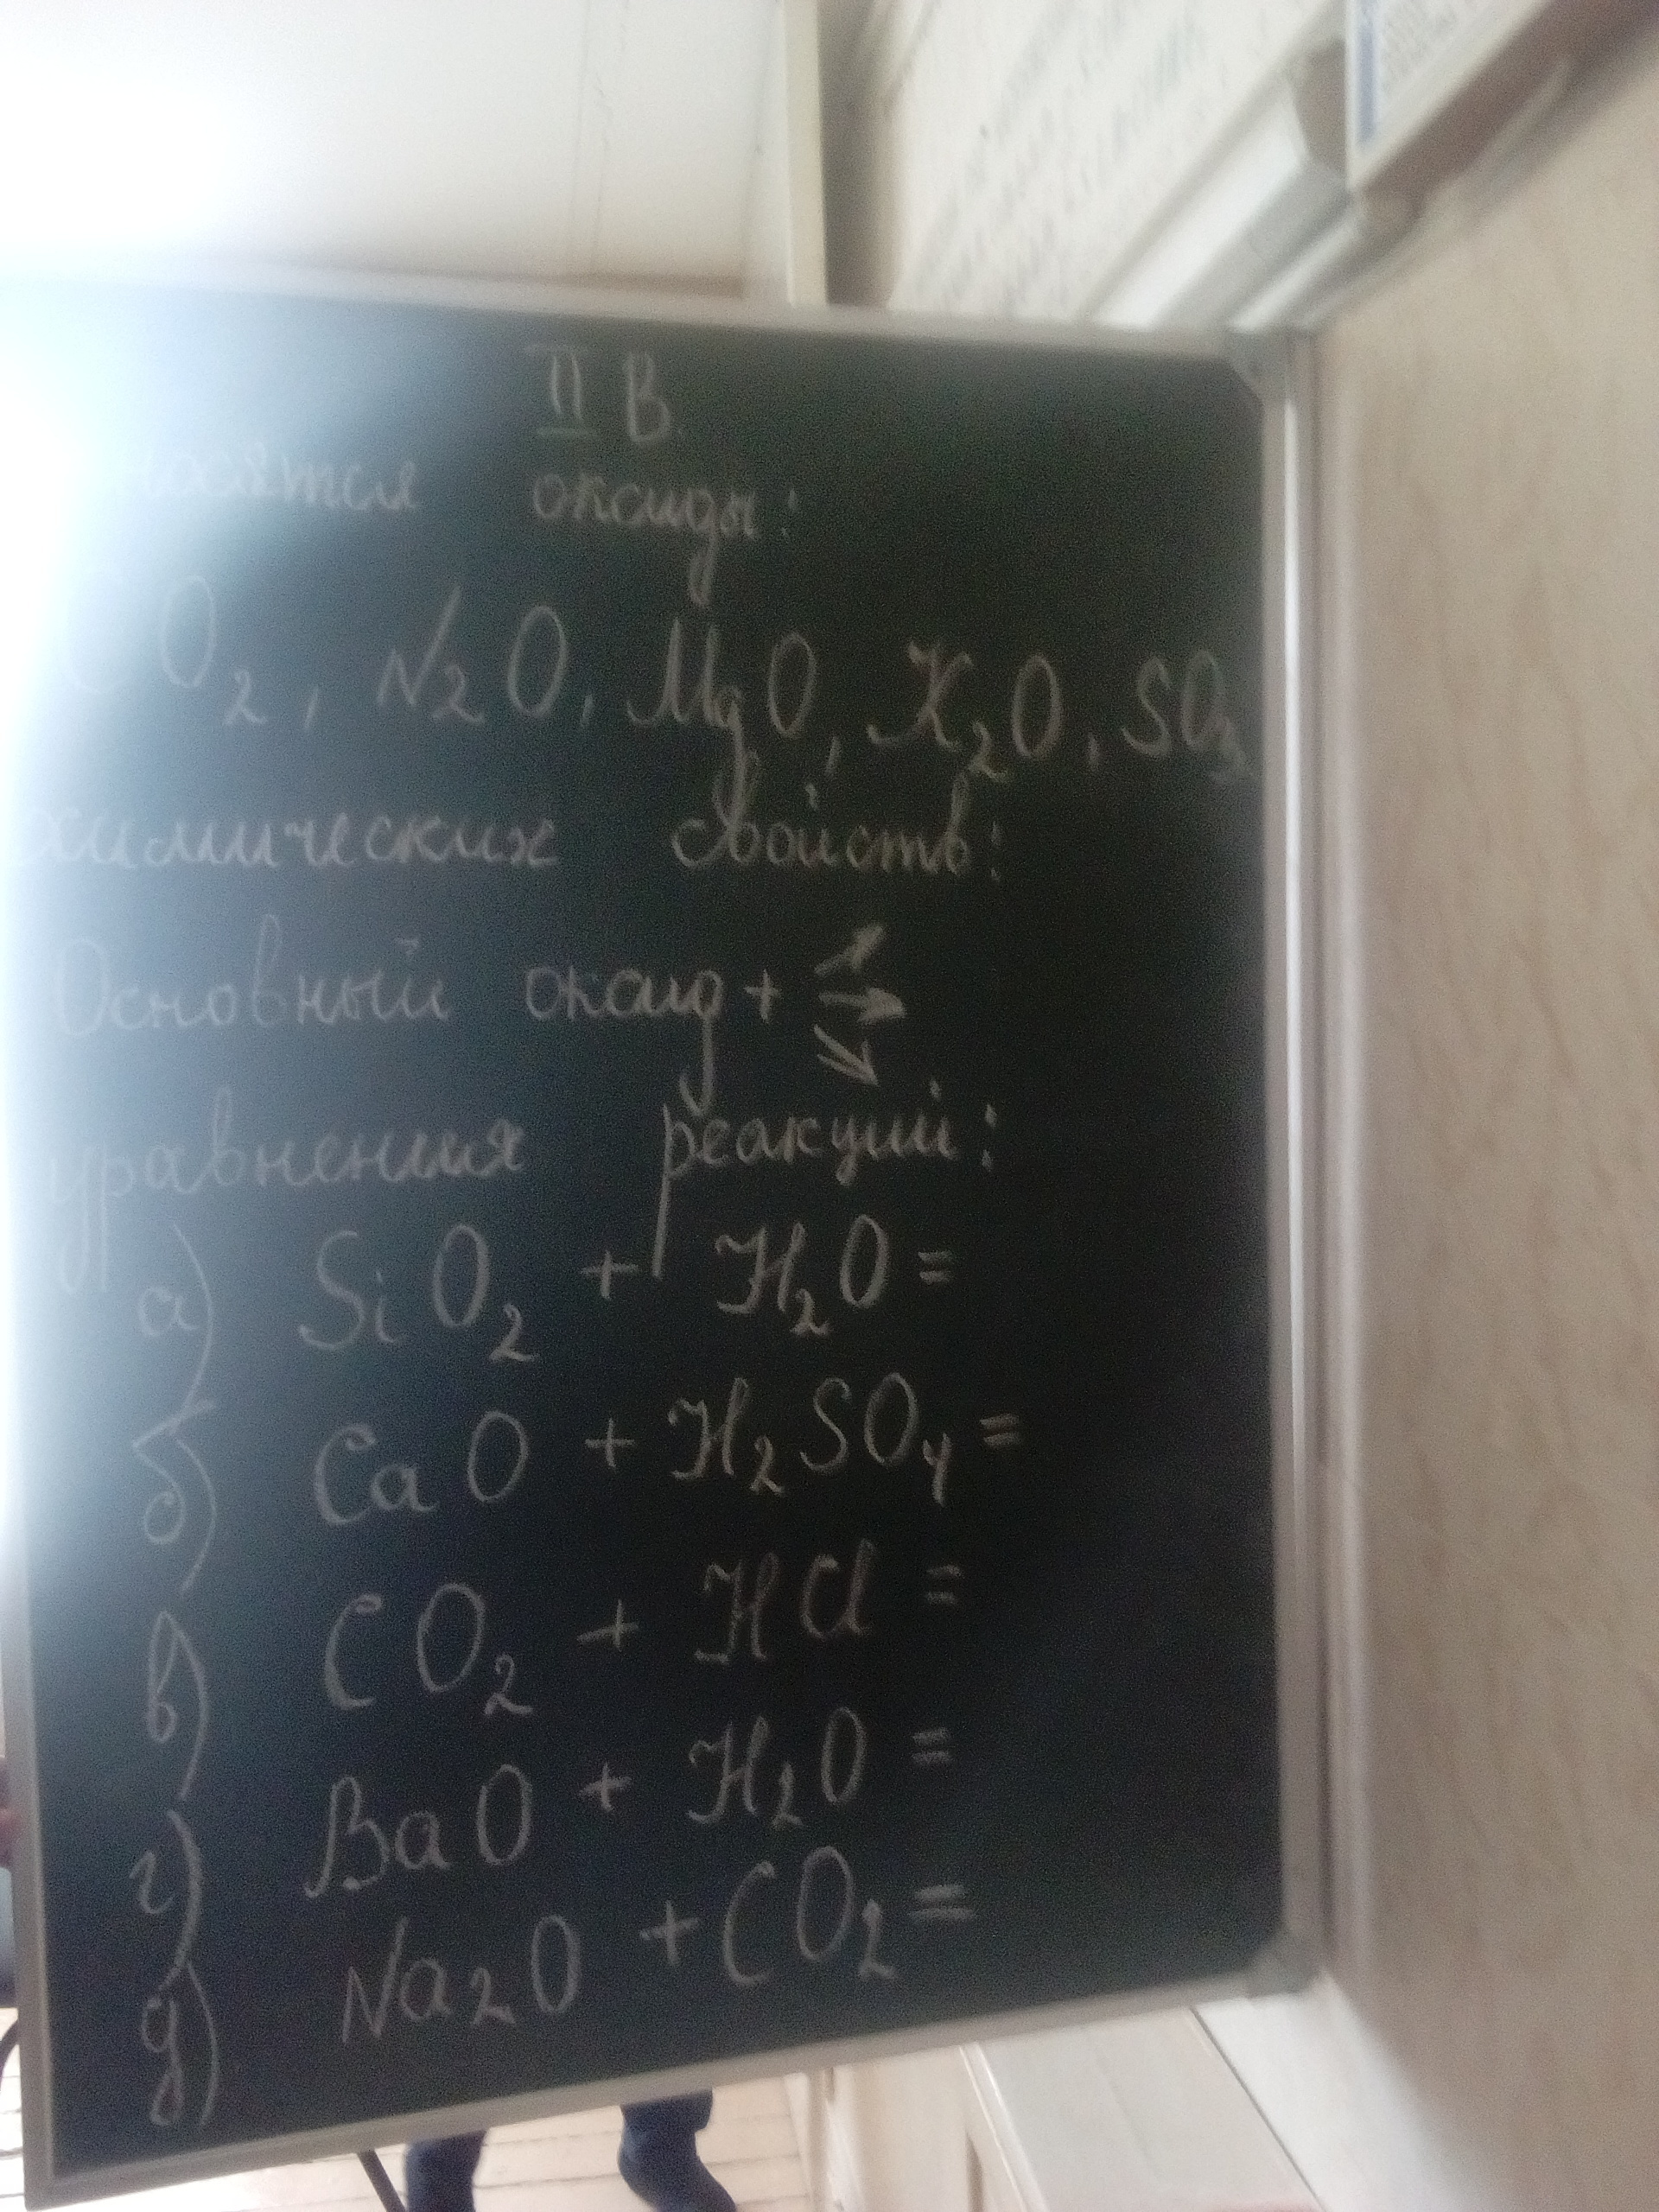 II В.
оксиды:
CO₂, N₂O, MgO, K₂O, SO₃
химических свойств:
Основный оксид +
уравнения реакций:
а) SiO₂ + H₂O =
б) CaO + H₂SO₄ =
в) CO₂ + HCl =
г) BaO + H₂O =
д) Na₂O + CO₂ =